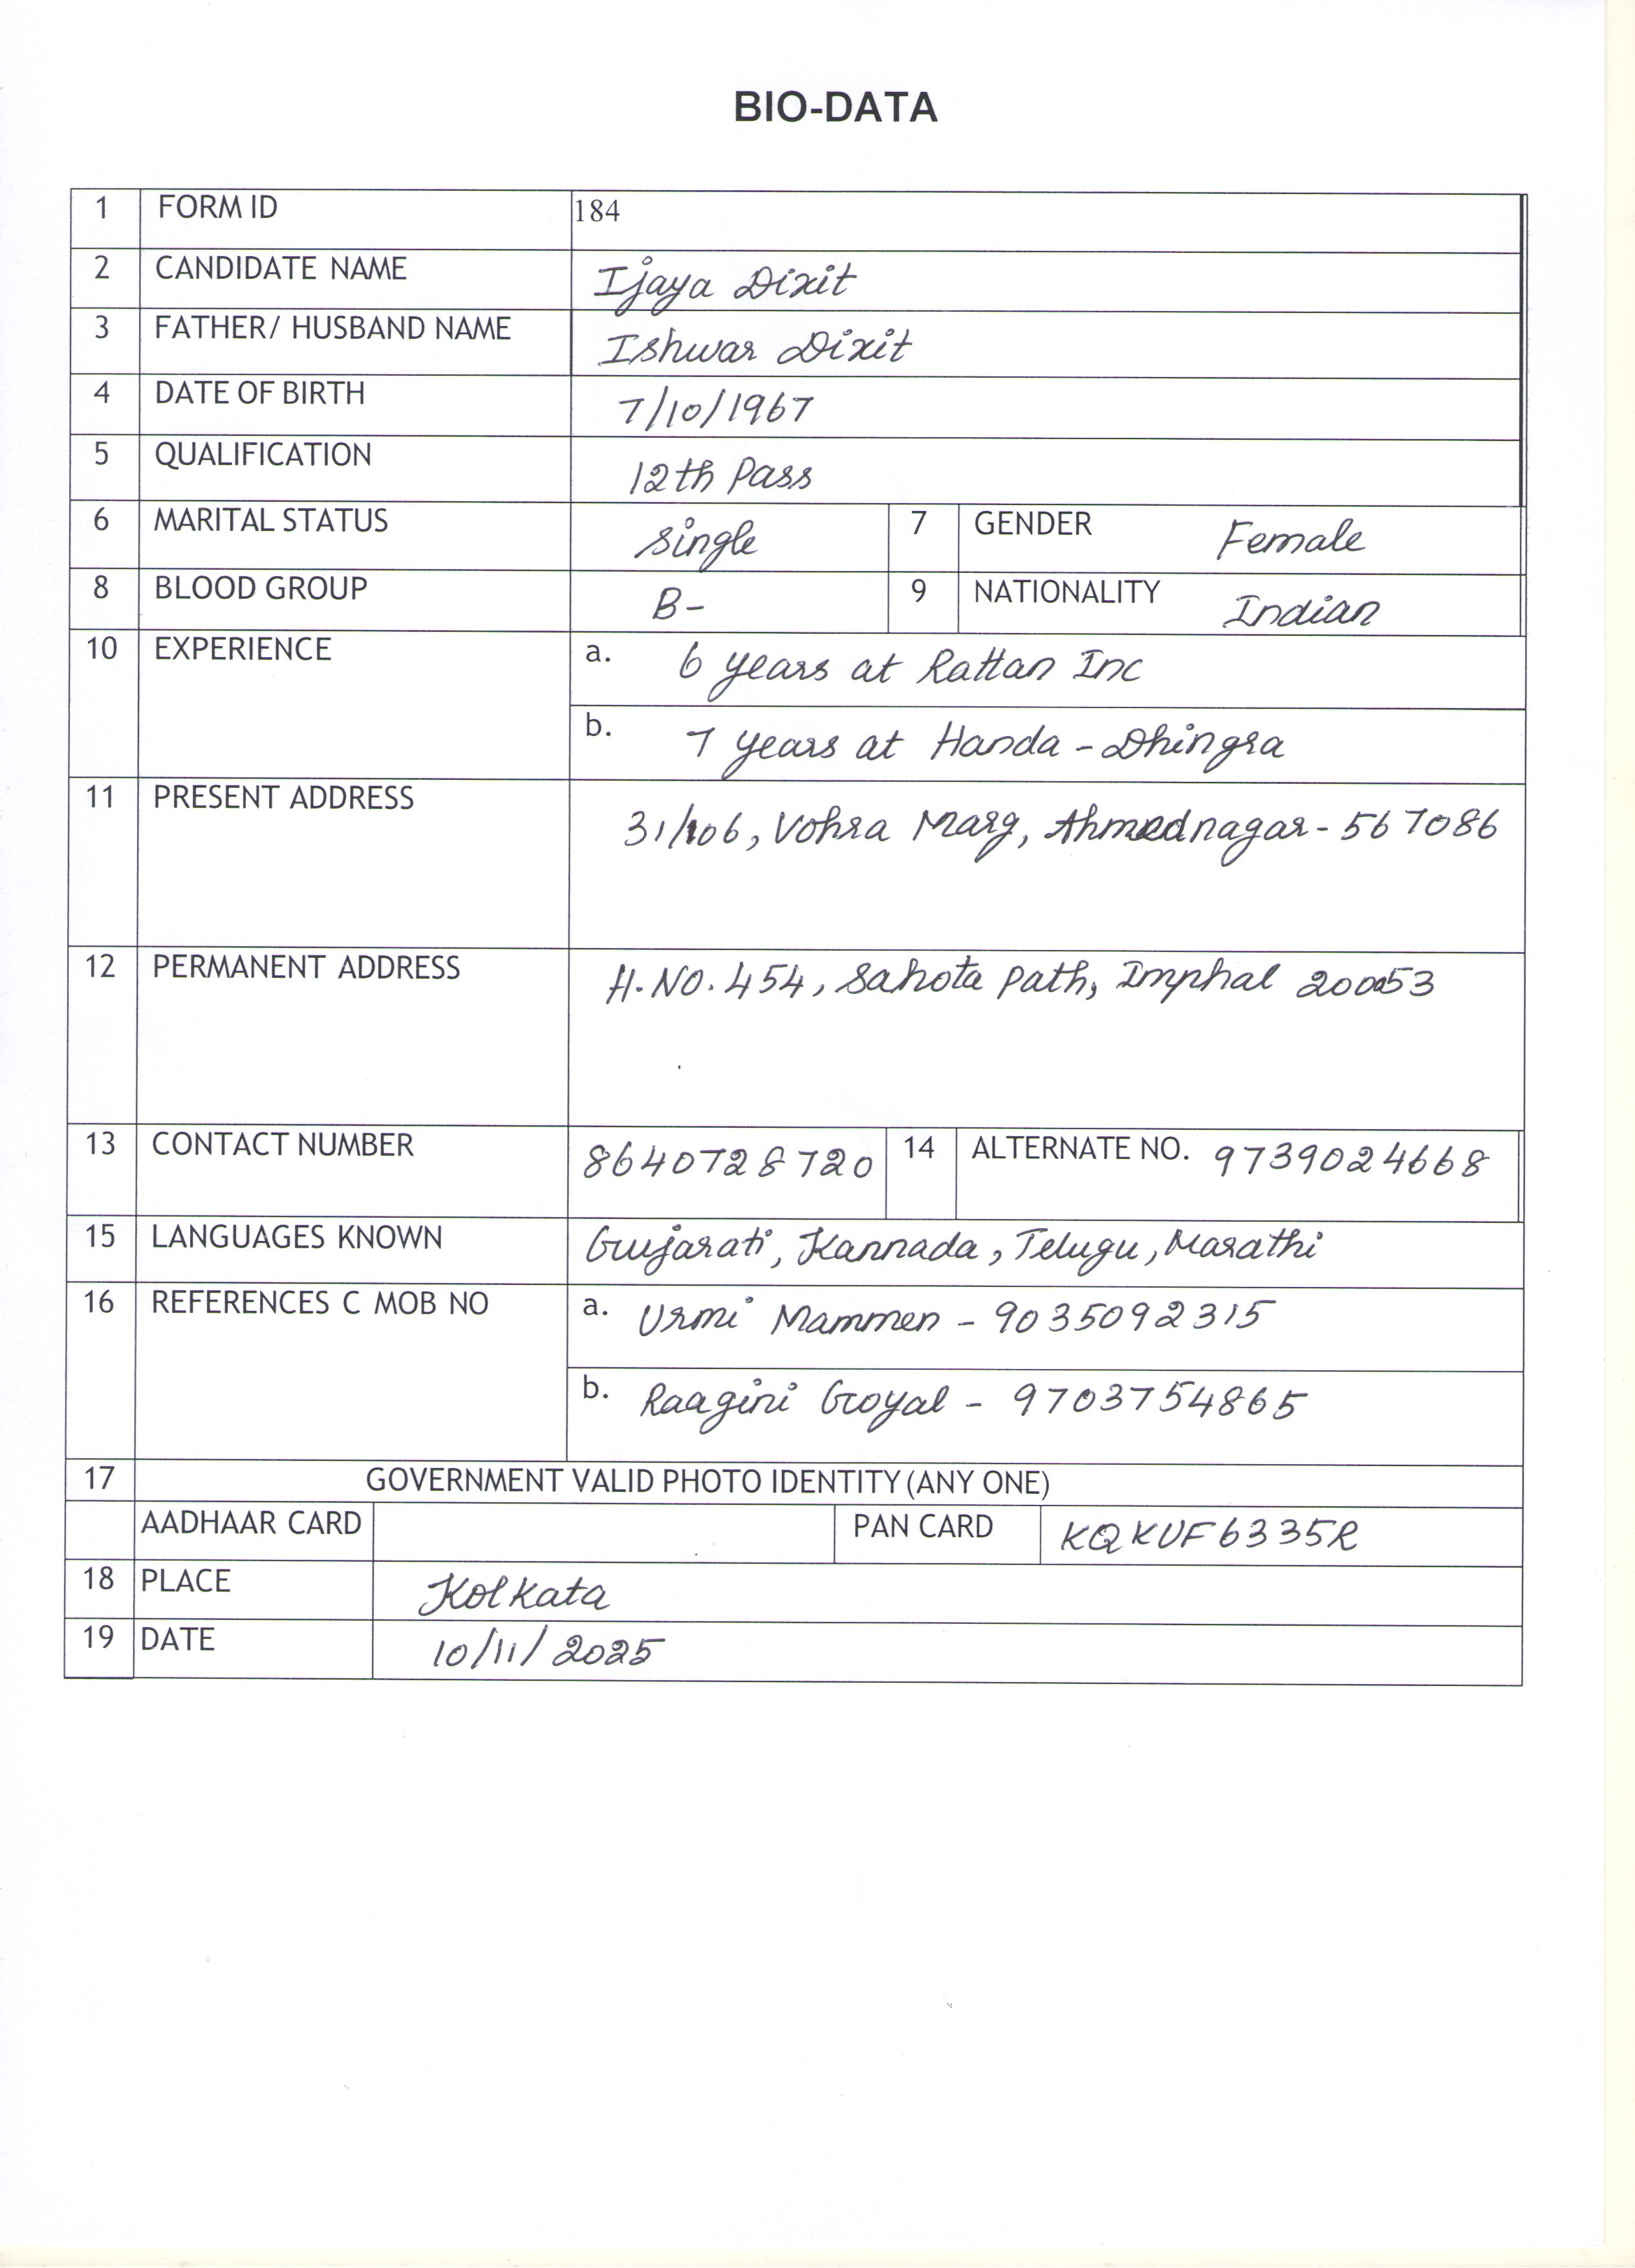 BIO-DATA
1 FORM ID 184
2 CANDIDATE NAME Ijaya Dixit
3 FATHER/ HUSBAND NAME Ishwar Dixit
4 DATE OF BIRTH 7/10/1967
5 QUALIFICATION 12th Pass
6 MARITAL STATUS Single 7 GENDER Female
8 BLOOD GROUP B- 9 NATIONALITY Indian
10 EXPERIENCE a. 6 years at Rattan Inc
b. 7 years at Handa - Dhingra
11 PRESENT ADDRESS 31/106, Vohra Marg, Ahmednagar - 567086
12 PERMANENT ADDRESS H.NO. 454, Sahota Path, Imphal 200053
13 CONTACT NUMBER 8640728720 14 ALTERNATE NO. 9739024668
15 LANGUAGES KNOWN Gujarati, Kannada, Telugu, Marathi
16 REFERENCES C MOB NO a. Urmi Mammen - 9035092315
b. Raagini Goyal - 9703754865
17 GOVERNMENT VALID PHOTO IDENTITY (ANY ONE)
AADHAAR CARD PAN CARD KQKUF6335R
18 PLACE Kolkata
19 DATE 10/11/2025